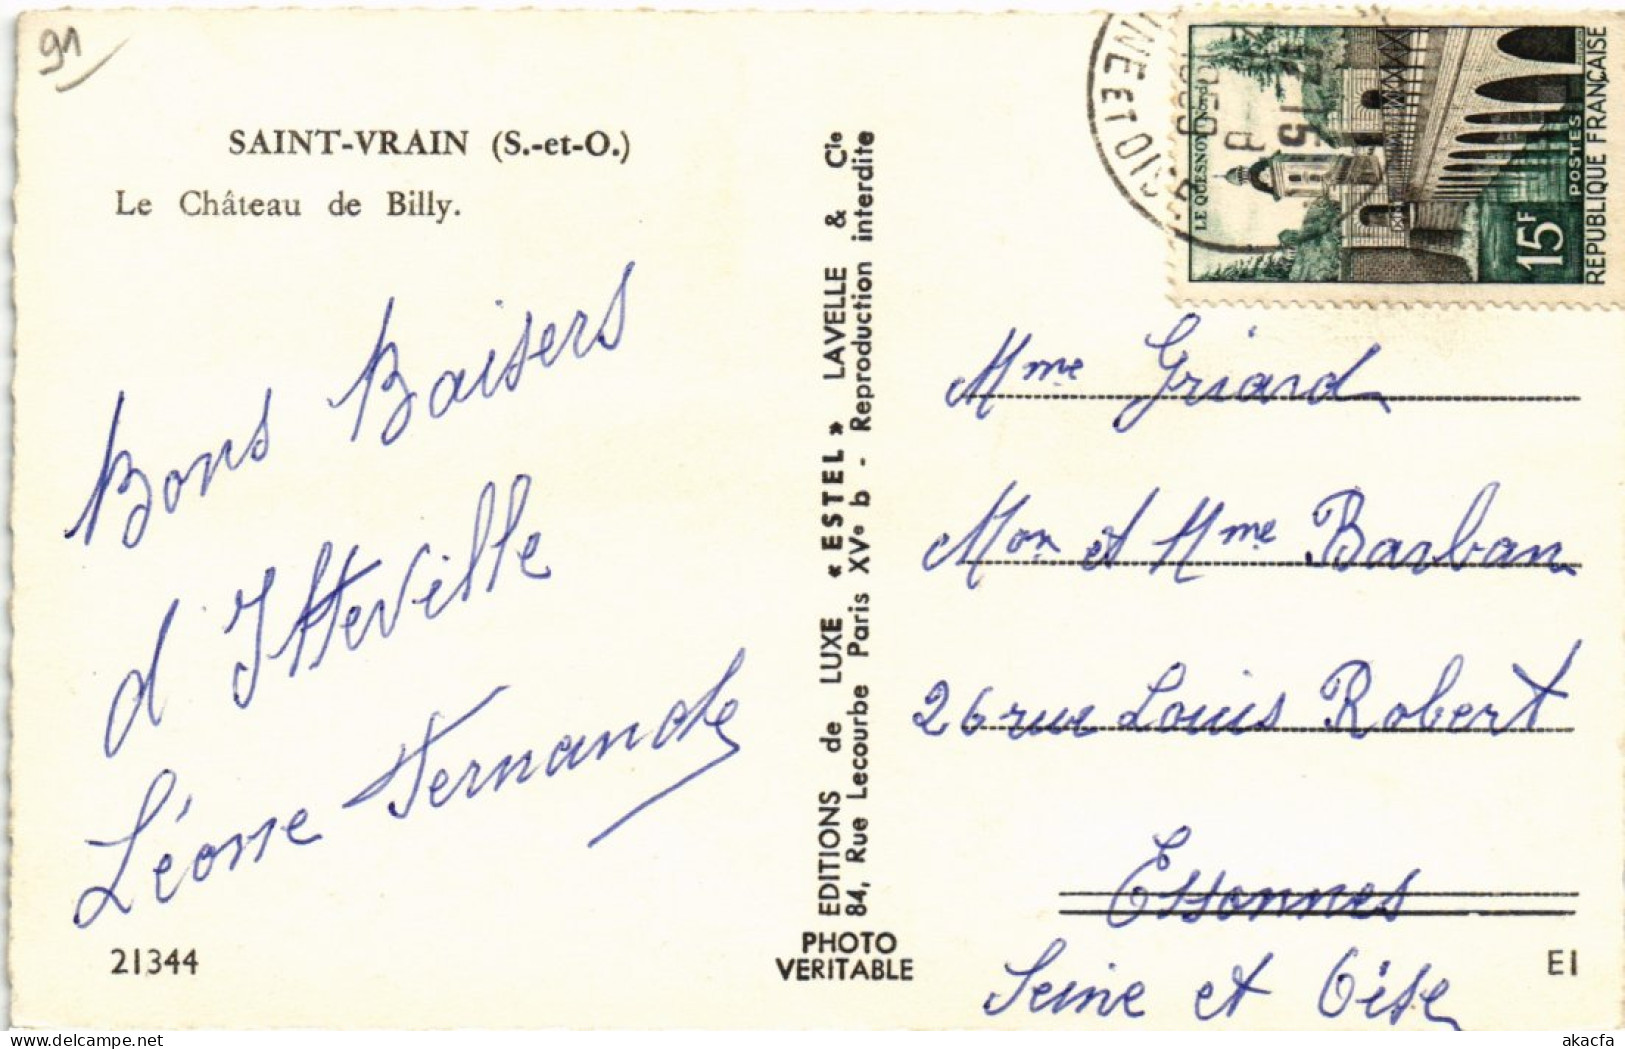 91
SAINT-VRAIN (S.-et-O.)
Le Château de Billy.
Bons Baisers
d'Itteville
Léone Fernande
21344
EDITIONS de LUXE « ESTEL » LAVELLE & Cie
84, Rue Lecourbe Paris XVe b - Reproduction interdite
PHOTO
VERITABLE
INE ET OIS
15
LE QUESNOY (Nord)
15F
POSTES
REPUBLIQUE FRANÇAISE
Mme Griard
Mon et Mme Barban
26 rue Louis Robert
Essonnes
Seine et Oise
E1
akacfa